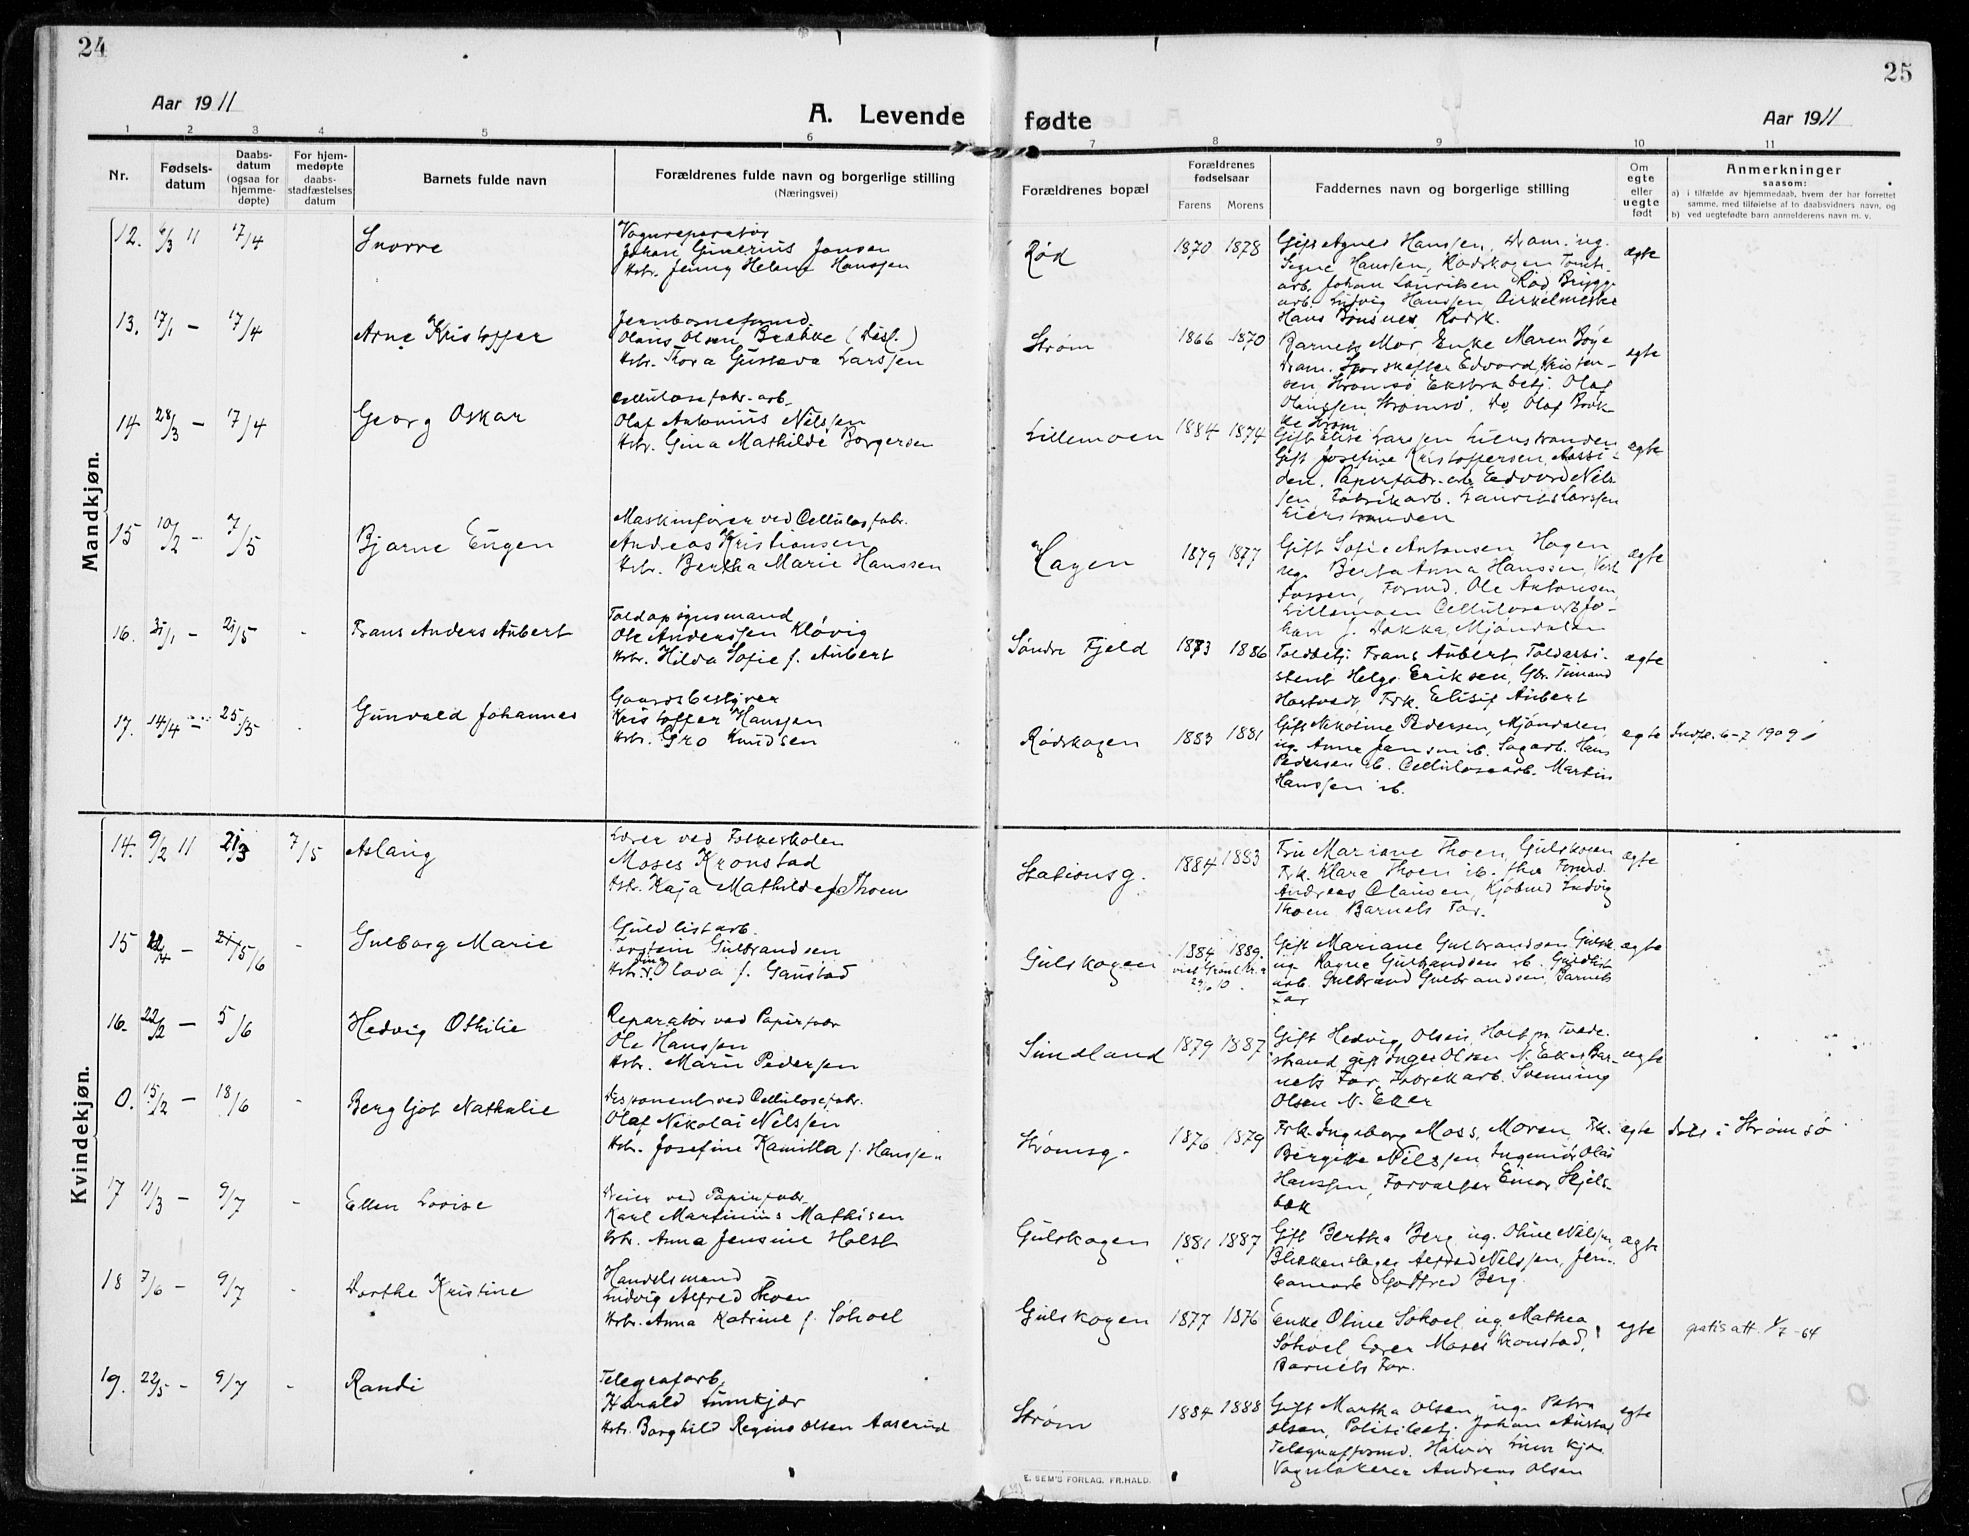 24
25
Aar 1911
A. Levende
fødte
Aar 1911
1 2 3 4 5 6 7 8 9 10 11
Nr.
Fødsels-
datum
Daabs-
datum
(ogsaa for
hjemme-
døpte)
For hjem-
medøpte
daabs-
stadfæstelses
datum
Barnets fulde navn
Forældrenes fulde navn og borgerlige stilling
(Næringsvei)
Forældrenes bopæl
Forældrenes
fødselsaar
Farens Morens
Faddernes navn og borgerlige stilling
Om
egte
eller
uegte
født
Anmerkninger
saasom:
a) i tilfælde av hjemmedaab, hvem der har forrettet
samme, med tilføielse af to daabsvidners navn, og
b) ved uegtefødte barn anmelderens navn m. v.
Mandkjøn.
12. 6/3 11 17/4 Snorre
Vognreparatør
Johan Ginerius Jansen
Hstr. Jenny Helene Hanssen
Rød 1870 1878
Gift Agnes Hanssen, Dram. ug.
Signe Hanssen, Rødskogen Tomt-
arb. Johan Lauritsen Rød Brygge-
arb. Ludvig Hanssen Cirkelmester
Hans Bonsnes, Rødsk.
egte
13. 17/1 — 17/4 Arne Kristoffer
Jernbaneformd.
Olaus Olsen Brække (Diss.)
Hstr. Thora Gustava Larssen
Strøm 1866 1870
Barnets Mor, Enke Maren Bøye
Dram. Sporskifter Edvard Kristen-
sen Strømsø Ekstrabetj. Olaf
Olaussen, Strømsø, Do. Olaf Bræk-
ke Strøm
egte
14 28/3 — 17/4 Georg Oskar
Cellulosefabr.arb.
Olaf Antonius Nilssen
Hstr. Gina Mathilde Borgersen
Lillemoen 1884 1874
Gift Elise Larssen Lierstranden
Gift Josefine Kristoffersen, Aassi-
den. Papirfabr.arb. Edvard Nils-
sen, Fabrikarb. Laurits Larssen
Lierstranden
egte
15 10/2 — 7/5 Bjarne Eugen
Maskinfører ved Cellulosefabr.
Andreas Kristiansen
Hstr. Bertha Marie Hanssen
Hagen 1879 1877
Gift Sofie Antonsen Hagen
ug. Berta Anna Hanssen, Vest-
fossen, Formd. Ole Antonsen
Lillemoen Cellulosearb. Jo-
han J. Dokka, Mjøndalen
egte
16. 31/1 — 21/5 - Frans Anders Aubert
Toldopsynsmand
Ole Anderssen Kløvig
Hstr. Hilda Sofie f. Aubert
Søndre Fjeld 1883 1886
Toldbetj. Frans Aubert Toldassi-
stent Helge Eriksen, Gbr. Timand
Hostvedt, Frk. Elisif Aubert
egte
17. 14/4 — 25/5 - Gunvald Johannes
Gaardsbestyrer
Kristoffer Hanssen
Hstr. Gro Knudsen
Rødskogen 1883 1881
Gift Nikoline Pedersen, Mjøndalen
ug. Anna Jansen ib. Sagarb. Hans
Pedersen ib. Cellulosearb. Martin
Hanssen ib.
egte Indfl. 6-7 1909
Kvindekjøn.
14. 9/2 11 21/3 7/5 Aslaug
Lærer ved Folkeskolen
Moses Kronstad
Hstr. Kaja Mathilde f. Thoen
Stationsg. 1884 1883
Fru Mariane Thoen, Gulskogen
Frk. Klara Thoen ib. fhv. Formd.
Andreas Clausen, Kjøbmd Ludvig
Thoen Barnets Far.
egte
15 — 5/6 - Gulborg Marie
Guldlistarb.
Torstein Gulbrandsen
Hstr. Olava f. Gaustad
Gulskogen 1884 1889.
Gift Mariane Gulbrandsen Gulsk
ug. Ragna Gulbrandsen ib. Guldlist-
arb. Gulbrand Gulbrandsen, Barnets
Far
egte
16. 22/2 — 5/6 Hedvig Othilie
Reparatør ved Papirfabr
Ole Hanssen
Hstr. Marie Pedersen
Sundland 1879 1887
Gift Hedvig Olsen, Holt pr. Tvede-
strand gift Inger Olsen N. Eker Bar-
nets Far, Fabrikarb. Svenning
Olsen N. Eker
egte
0. 15/2 — 18/6 - Bergljot Nathalie
Disponent ved Cellulosefabr.
Olaf Nikolai Nilssen
Hstr. Josefine Kamilla f. Hanssen
Strømsg. 1876 1879
Frk. Ingeborg Moss, Moren, Frk.
Birgitte Nilssen, Ingeniør Olaf
Hanssen, Forvalter Einar Skjels-
bæk
egte Døbt i Strømsø
17 11/3 — 9/7 - Ellen Lovise
Dreier ved Papirfabr.
Karl Martinius Mathisen
Hstr. Anna Jensine Holst
Gulskogen 1881 1887
Gift Bertha Berg ug. Oline Nilssen
Blikkenslager Alfred Nilssen, Jern-
banearb Godtfred Berg.
egte
18 7/6 — 9/7 - Dorthe Kristine
Handelsmand
Ludvig Alfred Thoen
Hstr. Anna Katrine f. Søhoel
Gulskogen 1877 1876
Enke Oline Søhoel, ug. Mathea
Søhoel Lærer Moses Kronstad,
Barnets Far.
egte gratis att. 1/7-64
19. 22/5 - 9/7 - Randi
Telegrafarb.
Harald Lumkjær
Hstr. Borghild Regine Olsen Aaserud
Strøm 1884 1888
Gift Martha Olsen, ug. Petra
Olsen, Politibetj. Johan Austad
Telegrafformd. Halvor Lumkjær
Vognlakerer Andreas Olsen
egte
E. SEM'S FORLAG. FR.HALD.